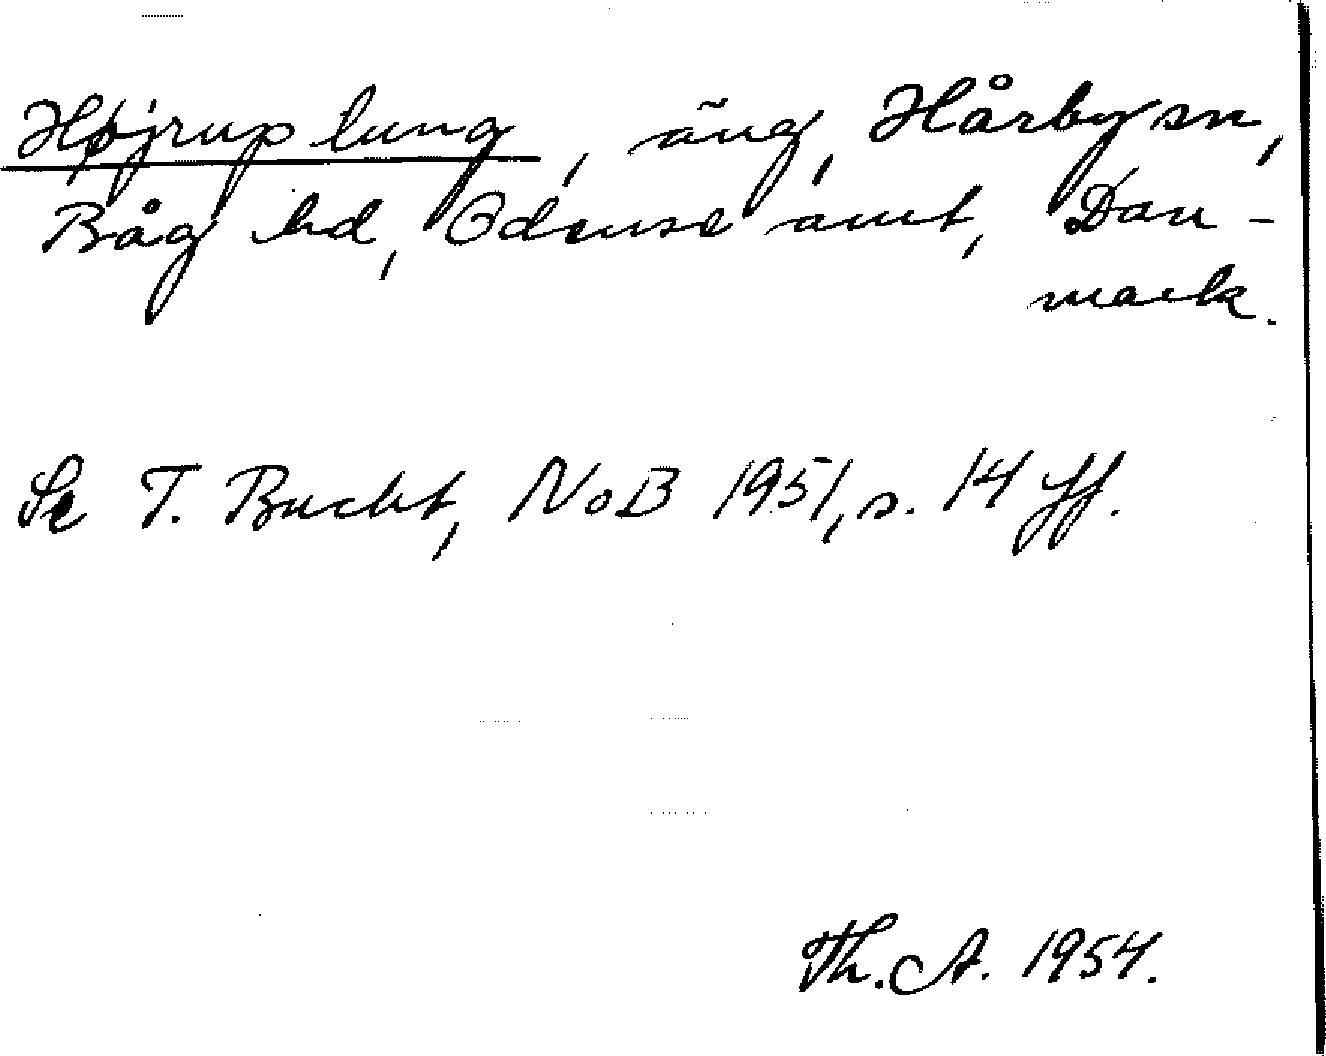 Højrup lung, äng, Hårby sn,
Båg hd, Odense amt, Dan-
mark.
Se T. Bucht, NoB 1951, s. 14 ff.
Th. A. 1954.